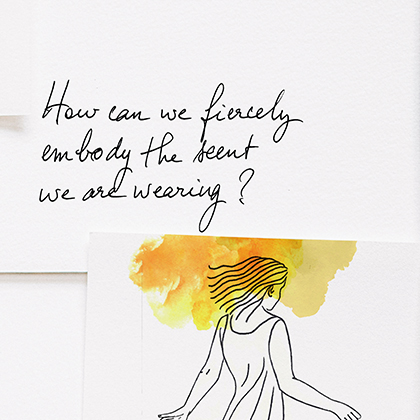 How can we fiercely
embody the scent
we are wearing?